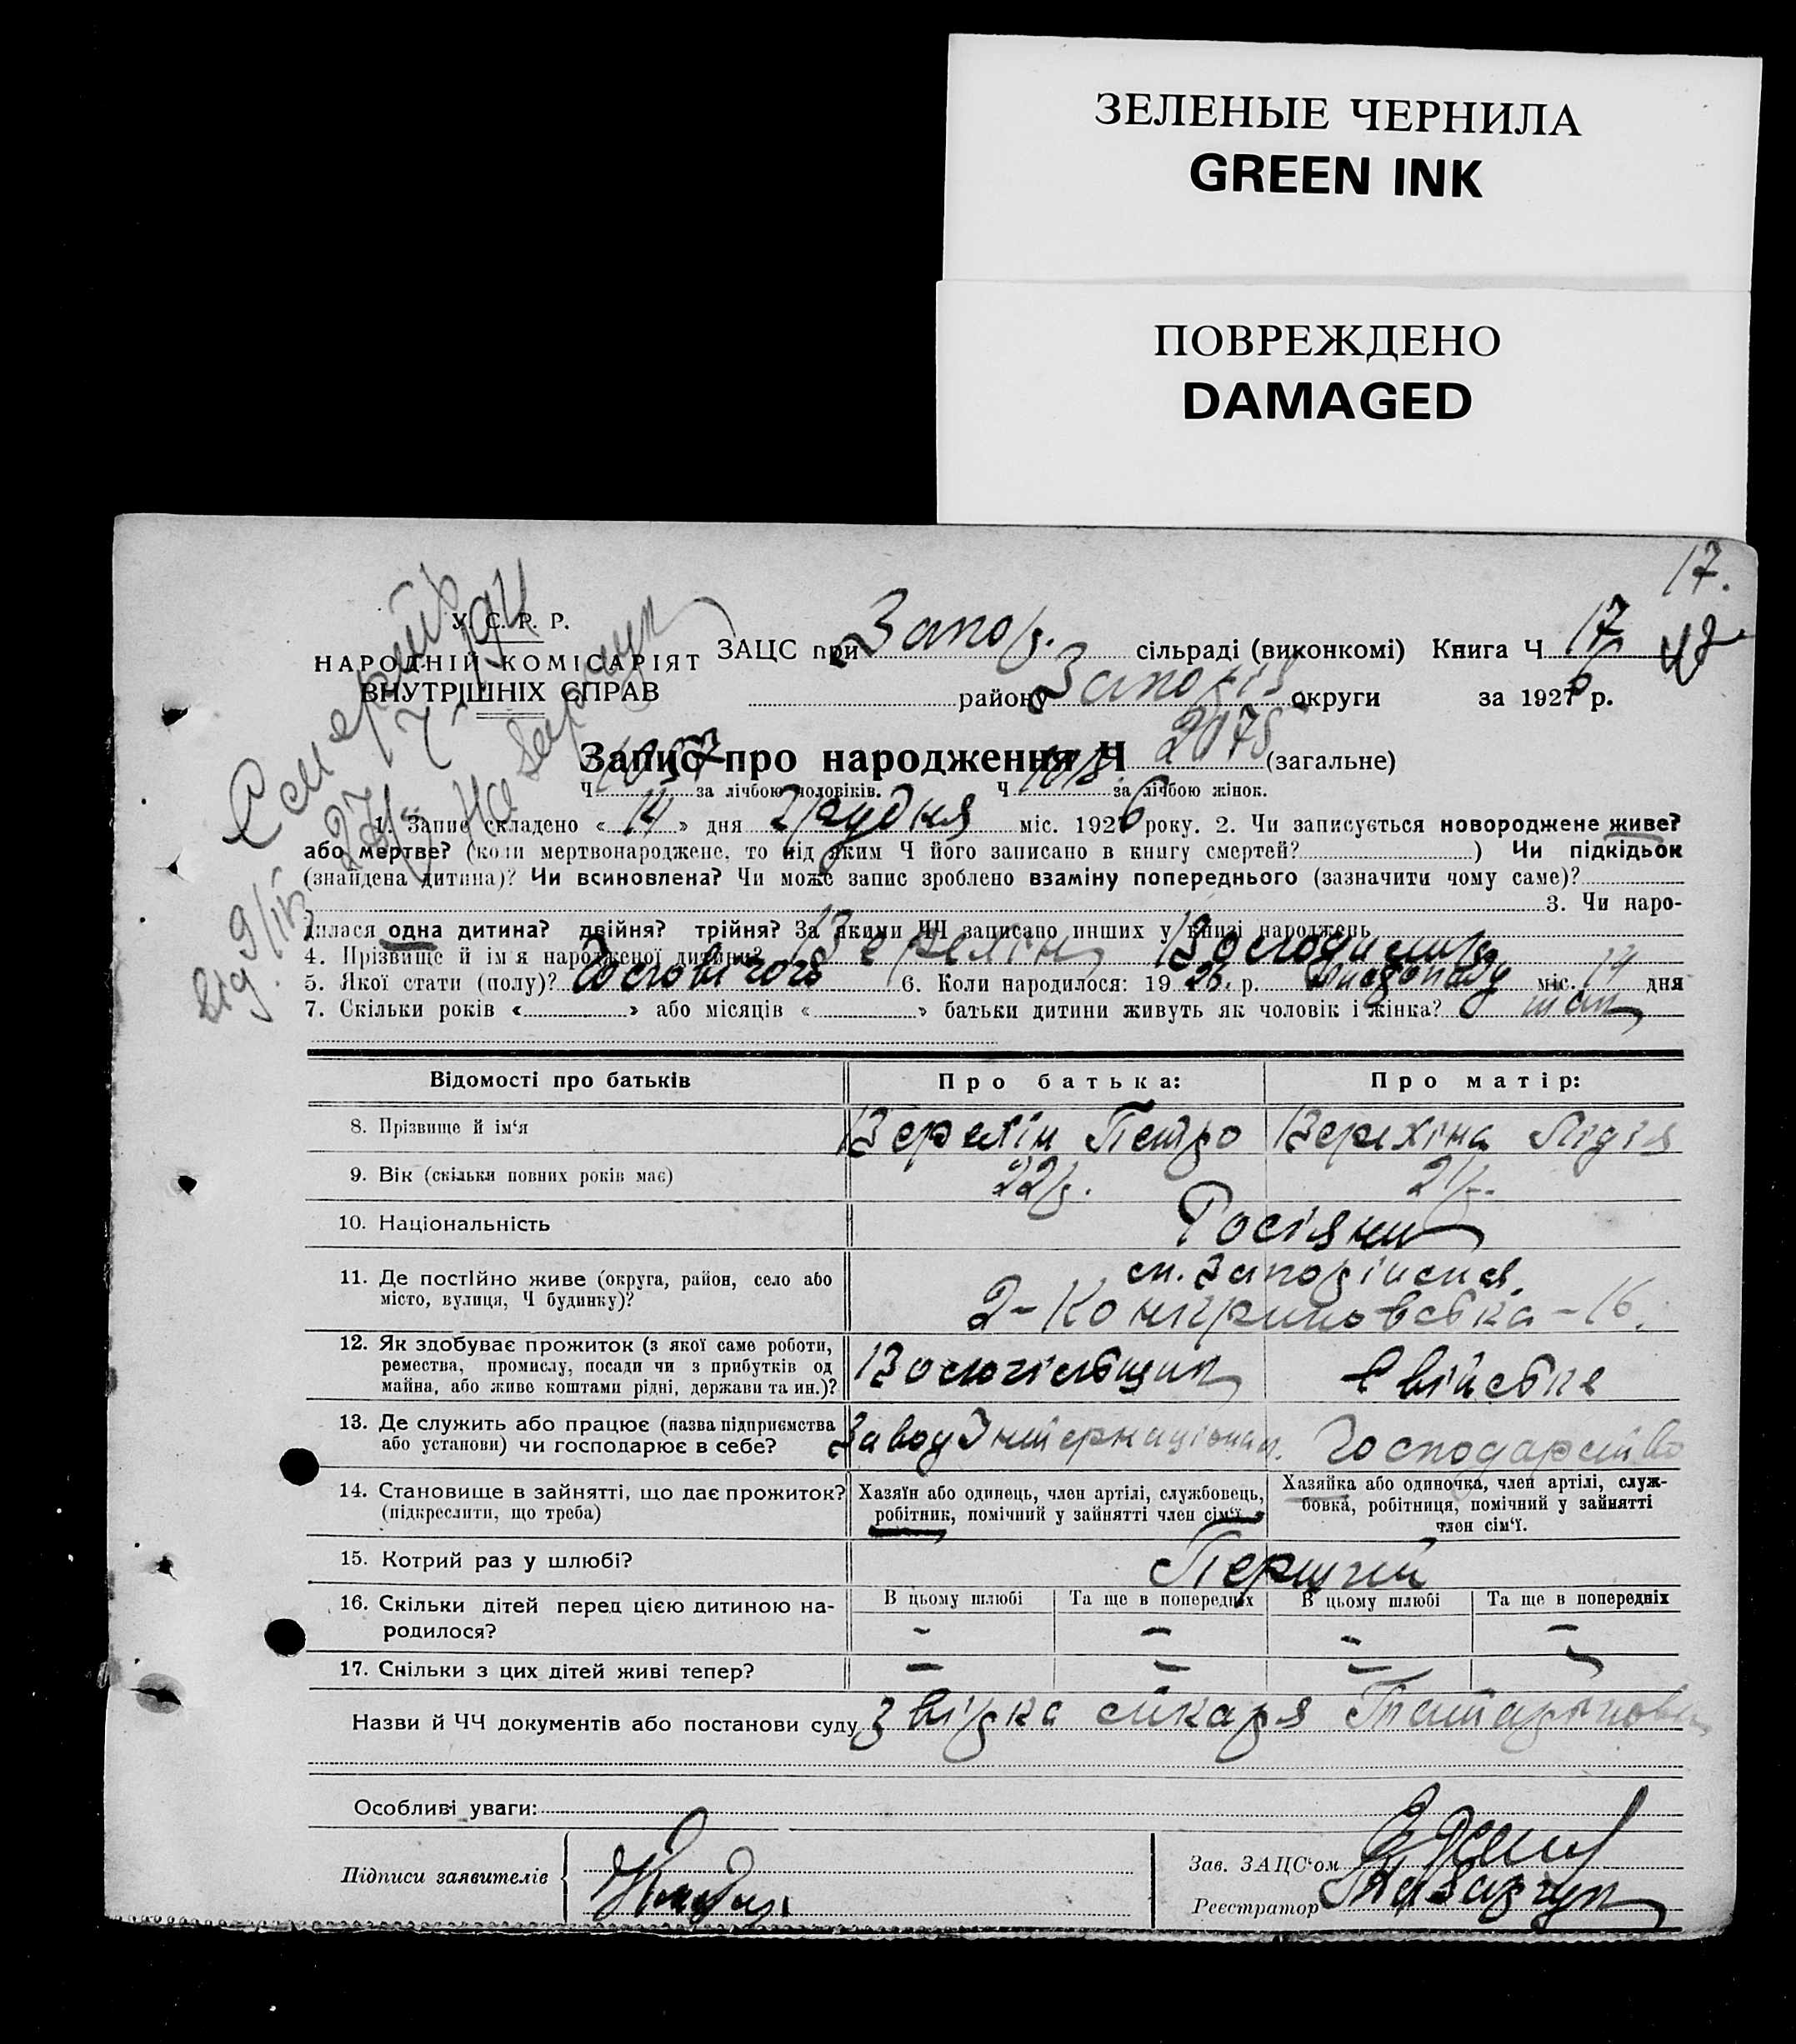 ЗЕЛЕНЫЕ ЧЕРНИЛА
GREEN INK
ПОВРЕЖДЕНО
DAMAGED
17.
У. С. Р. Р.
НАРОДНІЙ КОМІСАРІЯТ
ВНУТРІШНІХ СПРАВ
ЗАЦС при Запор. сільраді (виконкомі) Книга Ч 17
району Запоріз округи за 1926 р.
Запис про народження Ч 2075 (загальне)
Ч 1057 за лічбою чоловіків. Ч 1018 за лічбою жінок.
1. Запис складено « 14 » дня Грудня міс. 1926 року. 2. Чи записується новороджене живе?
або мертве? (коли мертвонароджене, то під яким Ч його записано в книгу смертей? ) Чи підкідьок
(знайдена дитина)? Чи всиновлена? Чи може запис зроблено взаміну попереднього (зазначити чому саме)?
3. Чи наро-
дилася одна дитина? двійня? трійня? За якими ЧЧ записано инших у книзі народжень
4. Прізвище й ім'я народженої дитини? Верехін Володимир
5. Якої стати (полу)? Чоловічоі 6. Коли народилося: 1926. р. Листопаду міс. 14 дня
7. Скільки років « » або місяців « » батьки дитини живуть як чоловік і жінка?
Відомості про батьків Про батька: Про матір:
8. Прізвище й ім'я Верехін Петро Верехіна Лідія
9. Вік (скільки повних років має) 22 р. 21 р.
10. Національність Росіяни
11. Де постійно живе (округа, район, село або
місто, вулиця, Ч будинку)?
12. Як здобуває прожиток (з якої саме роботи,
ремества, промислу, посади чи з прибутків од
майна, або живе коштами рідні, держави та ин.)? Свійське
13. Де служить або працює (назва підприємства
або установи) чи господарює в себе? Завод Інтернаціонал. Господарство
14. Становище в зайнятті, що дає прожиток?
(підкреслити, що треба)
Хазяїн або одинець, член артілі, службовець,
робітник, помічний у зайнятті член сім'ї.
Хазяйка або одиночка, член артілі, служ-
бовка, робітниця, помічний у зайнятті
член сім'ї.
15. Котрий раз у шлюбі? Перший
16. Скільки дітей перед цією дитиною на-
родилося?
В цьому шлюбі Та ще в попередніх В цьому шлюбі Та ще в попередніх
- - - -
17. Скільки з цих дітей живі тепер? - - - -
Назви й ЧЧ документів або постанови суду
Особливі уваги:
Підписи заявителів
Зав. ЗАЦС'ом
Реєстратор